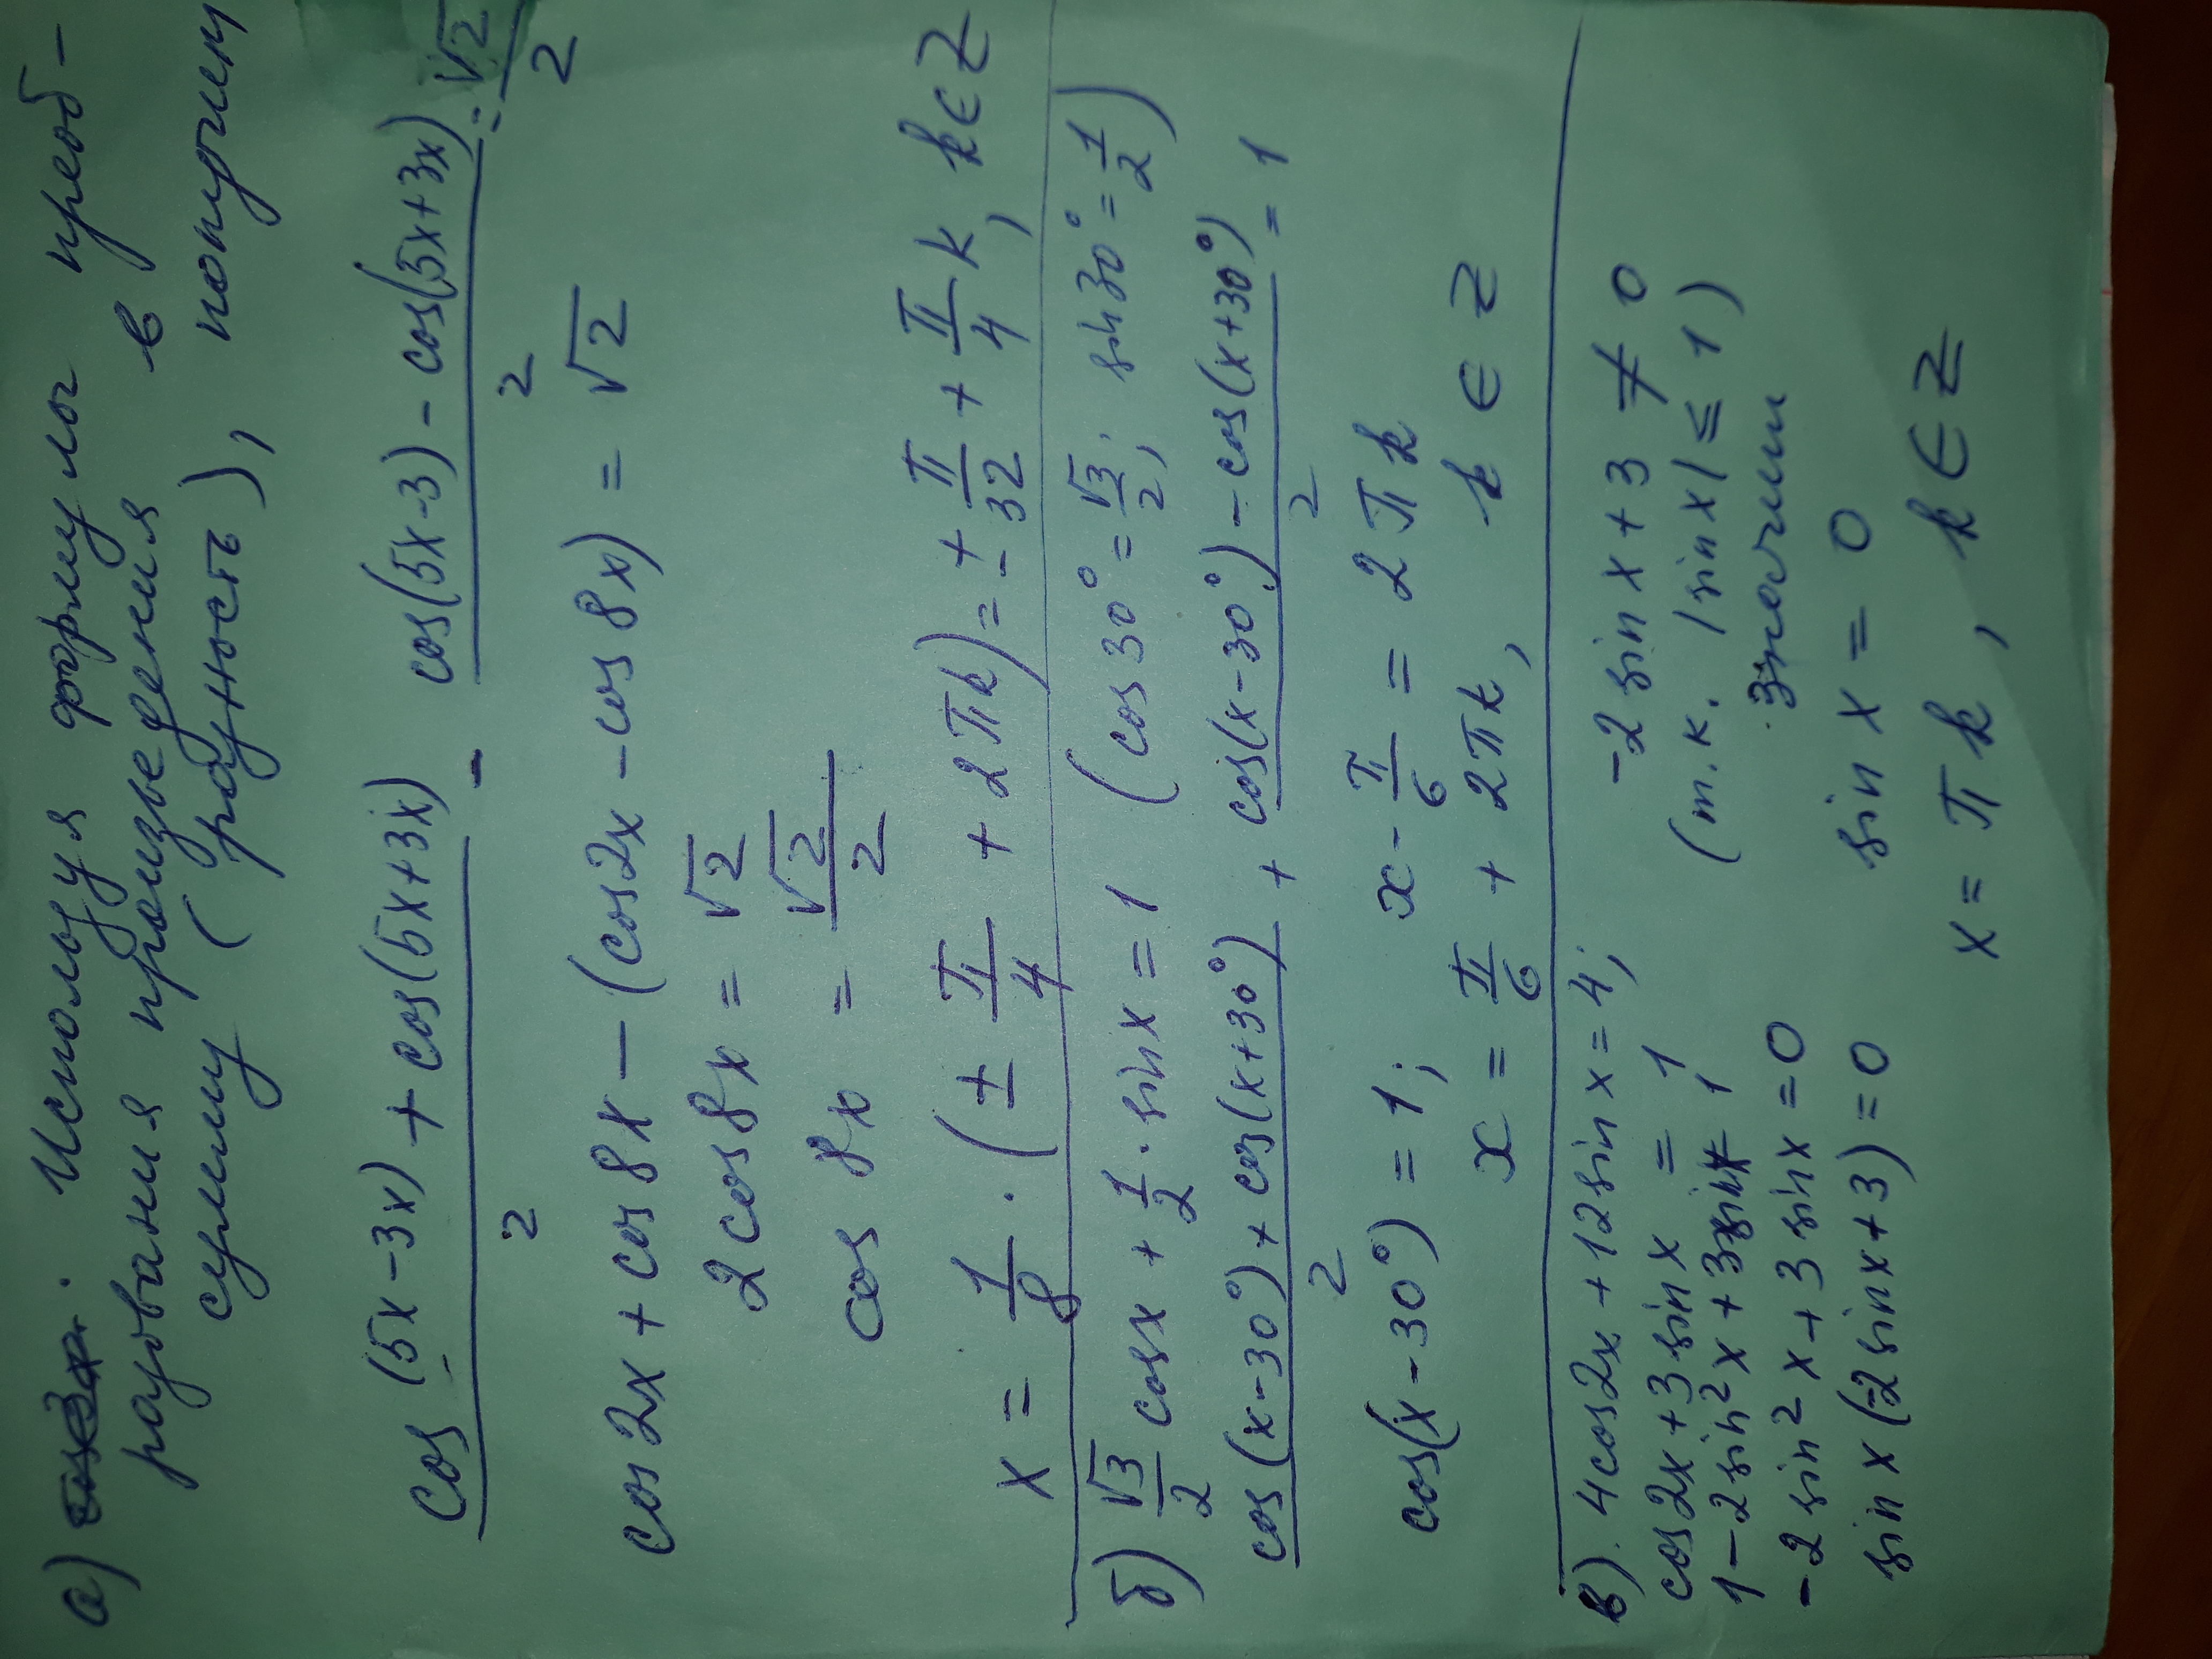 а) Используя формулы преоб-
разования произведения в
сумму (разность), получим
cos(5x-3x) + cos(5x+3x) / 2 - cos(5x-3) - cos(5x+3x) / 2 = √2/2
cos2x + cos8x - (cos2x - cos8x) = √2
2cos8x = √2
cos 8x = √2/2
x = 1/8 · (± π/4 + 2πk) = ± π/32 + π/4 k, k ∈ Z
б) √3/2 cosx + 1/2 · sinx = 1 (cos30° = √3/2; sin30° = 1/2)
cos(x-30°) + cos(x+30°) / 2 + cos(x-30°) - cos(x+30°) / 2 = 1
cos(x-30°) = 1; x - π/6 = 2πk
x = π/6 + 2πk, k ∈ Z
в). 4cos2x + 12sinx = 4; -2sinx + 3 ≠ 0
cos2x + 3sinx = 1 (т.к. |sinx| ≤ 1)
1 - 2sin²x + 3sinx = 1 значит
-2sin²x + 3sinx = 0 sin x = 0
sin x (-2sinx + 3) = 0 x = πk, k ∈ Z